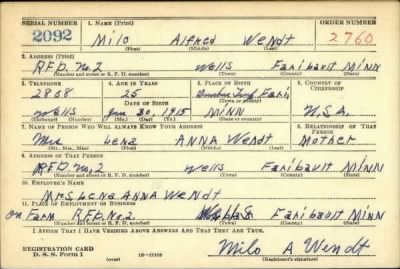 SERIAL NUMBER 1. NAME (Print) ORDER NUMBER
2092 Milo Alfred Wendt 2760
(First) (Middle) (Last)
2. ADDRESS (Print)
RFD. No. 2 Wells Faribault MINN
(Number and street or R. F. D. number) (Town) (County) (State)
3. TELEPHONE 4. AGE IN YEARS 5. PLACE OF BIRTH 6. COUNTRY OF CITIZENSHIP
2868 25 Fari,
DATE OF BIRTH (Town or county)
Wells Jan 20, 1915 MINN U.S.A.
(Exchange) (Number) (Mo.) (Day) (Yr.) (State or country)
7. NAME OF PERSON WHO WILL ALWAYS KNOW YOUR ADDRESS RELATIONSHIP OF THAT PERSON
Mrs Lena ANNA Wendt Mother
(Mr., Mrs., Miss) (First) (Middle) (Last)
8. ADDRESS OF THAT PERSON
RFD. No, 2 Wells Faribault MINN
(Number and street or R. F. D. number) (Town) (County) (State)
10. EMPLOYER'S NAME
Mrs Lena ANNA Wendt
11. PLACE OF EMPLOYMENT OR BUSINESS
on Farm RFD. No 2. Wells Faribault MINN
(Number and street or R. F. D. number) (Town) (County) (State)
I AFFIRM THAT I HAVE VERIFIED ABOVE ANSWERS AND THAT THEY ARE TRUE.
REGISTRATION CARD
D. S. S. Form 1 (over) 16—17105 Milo A Wendt